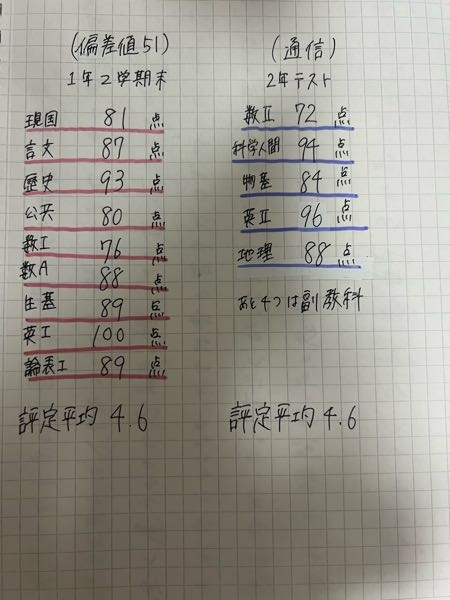 (偏差値51)
1年2学期末
現国 81 点
言文 87 点
歴史 93 点
公共 80 点
数I 76 点
数A 88 点
生基 89 点
英I 100 点
論表I 89 点
評定平均 4.6
(通信)
2年テスト
数II 72 点
科学人間 94 点
物基 84 点
英II 96 点
地理 88 点
あと4つは副教科
評定平均 4.6